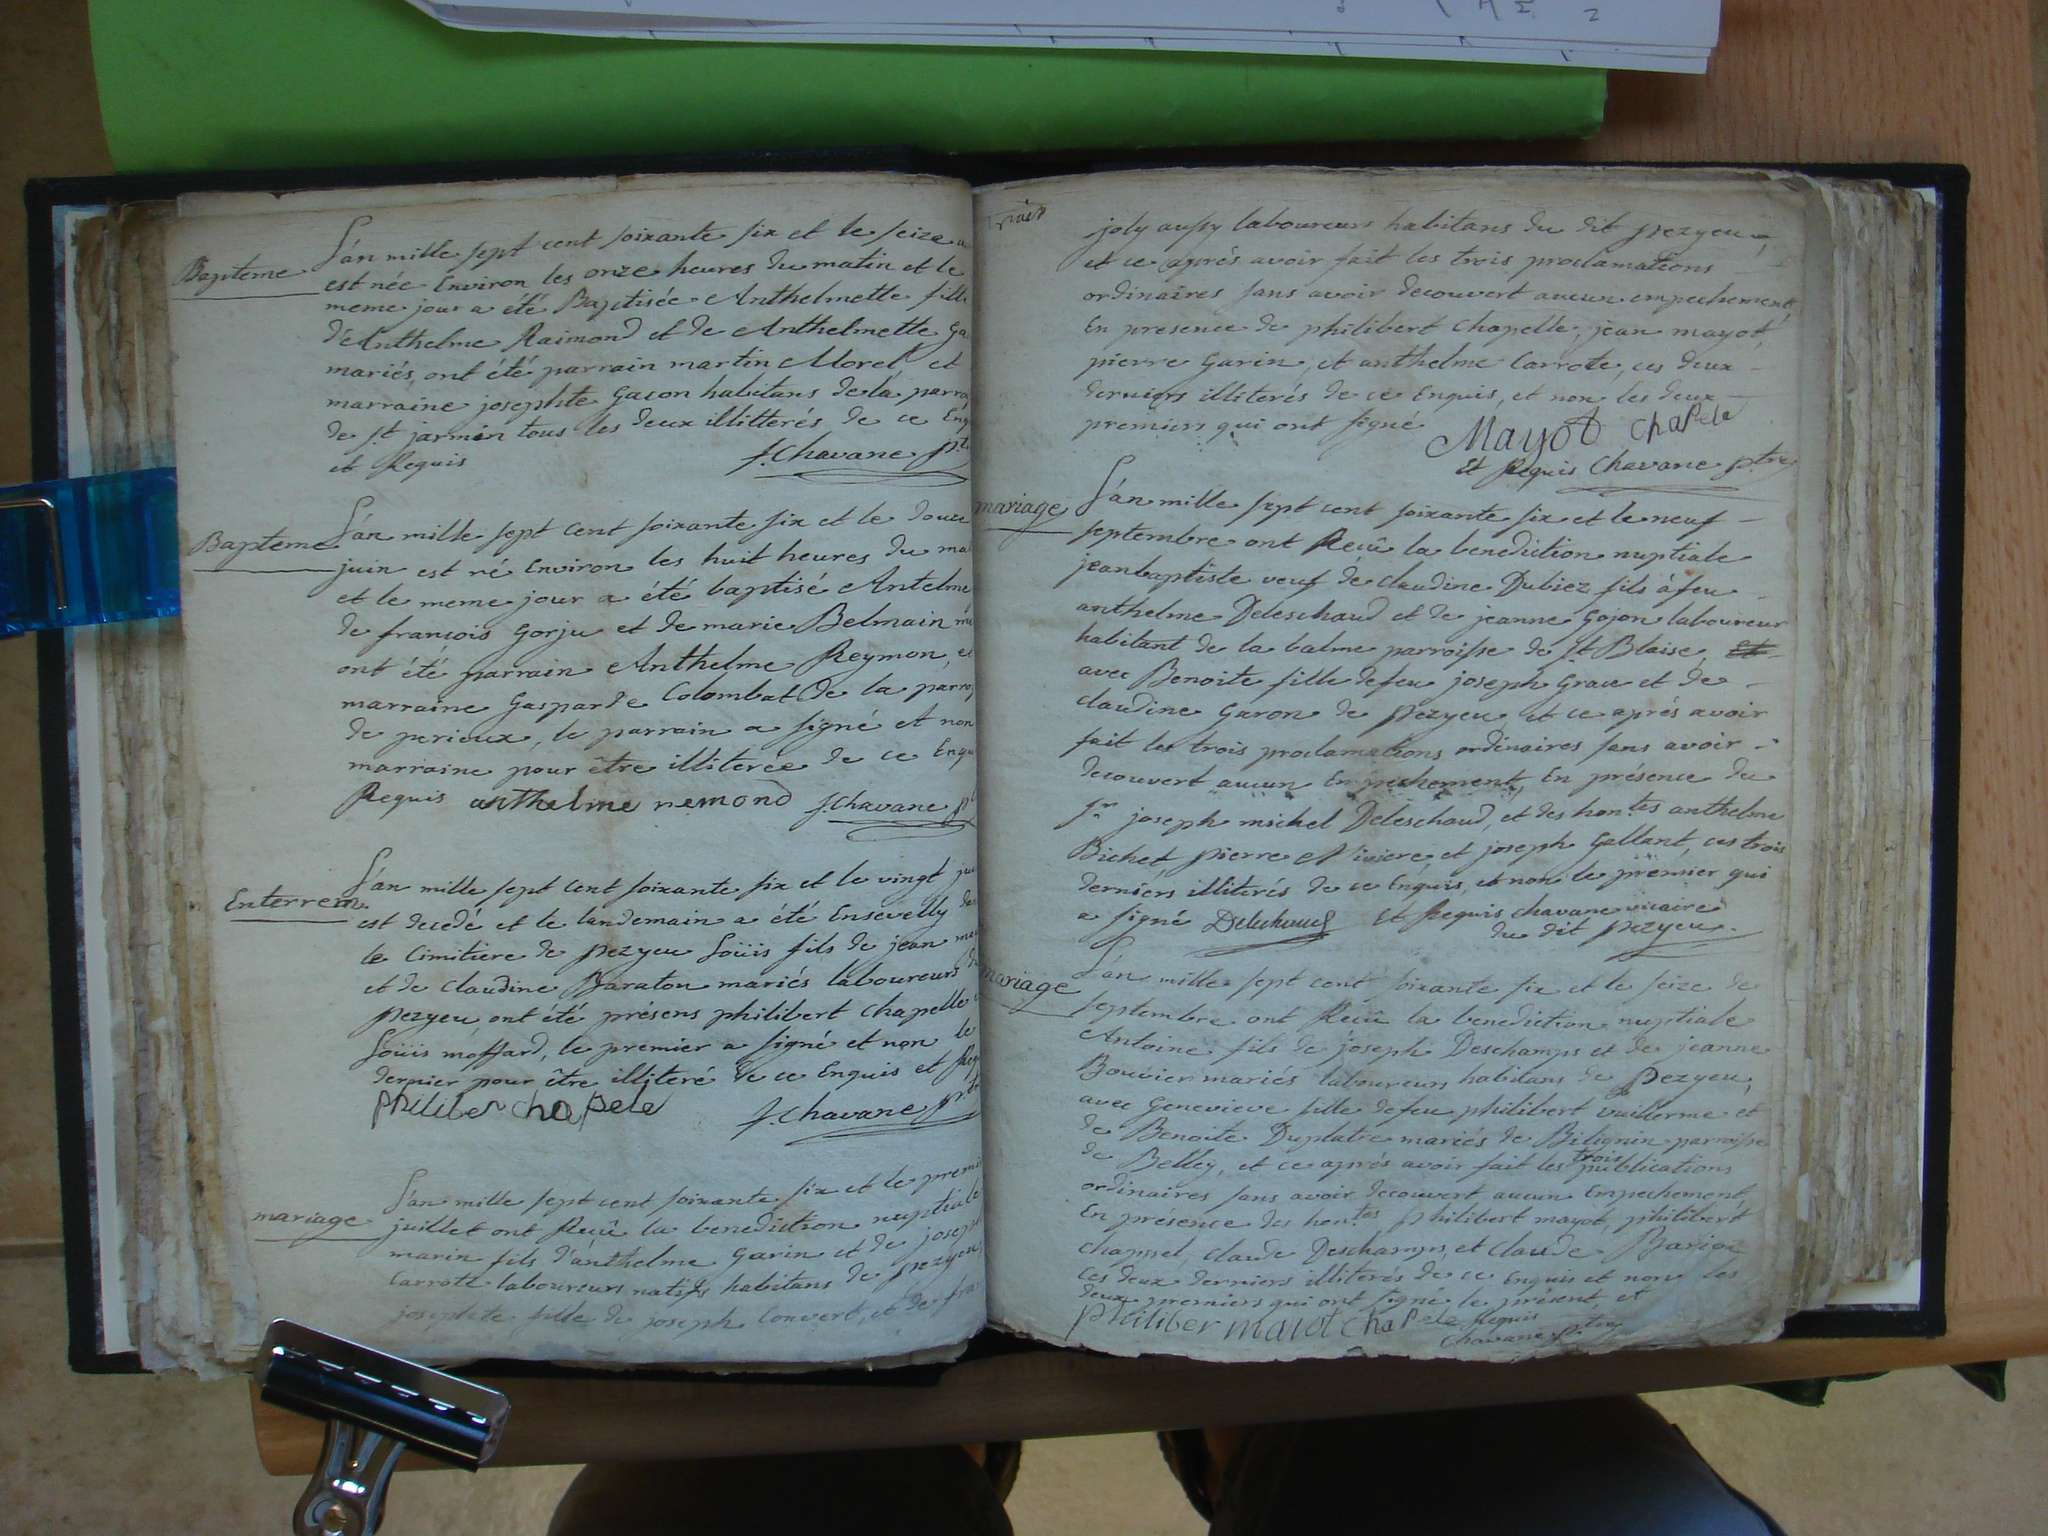 Bapteme
L'an mille sept cent soixante six et le seize
est née Environ les onze heures du matin et le
meme jour a été Baptisée Anthelmette fille
d'Anthelme Raimond et de Anthelmette
mariés, ont été parrain martin Morel, et
marraine josephte Gacon habitans de la
de St jarmin tous les deux illitterés de ce Enq
et Requis J. Chavane ptr
Bapteme
L'an mille sept cent soixante six et le douze
juin est né Environ les huit heures du ma
et le meme jour a été baptisé Antelme
de françois Gorju et de marie Belmain
ont été parrain Anthelme Reymon, et
marraine Gasparde Colombat de la parro
de perieux, le parrain a signé et non
marraine pour être illiterée de ce Enqu
Requis anthelme remond J. Chavane p
Enterrem.
L'an mille sept cent soixante six et le vingt
est decedé et le landemain a été Ensevelly
le Cimitiere de pezyeu Loüis fils de jean
et de Claudine Baraton mariés laboureurs
pezyeu ont été présens philibert Chapelle
Loüis moffard, le premier a signé et non le
dernier pour être illiteré de ce Enquis et Req
philiber chapele J. Chavane ptr
mariage
L'an mille sept cent soixante six et le premi
juillet ont Reçû la benediction nuptiale
marin fils d'anthelme Garin et de joseph
Carrott laboureurs natifs habitans de pezyeu
josephte fille de joseph Convert, et de fran
joly aussy laboureurs habitans du dit pezyeu,
et ce aprés avoir fait les trois proclamations
ordinaires sans avoir decouvert aucun empechement,
En presence de philibert Chapelle, jean mayot,
pierre Garin, et anthelme Carrote, ces deux
derniers illiterés de ce Enquis, et non les deux
premiers qui ont signé Mayot Chapele
et Requis Chavane ptre
mariage
L'an mille sept cent soixante six et le neuf
septembre ont Reçû la benediction nuptiale
jeanbaptiste veuf de claudine Dubiez fils à feu
anthelme Deleschaud et de jeanne Gojon laboureur
habitant de la balme parroisse de St Blaise,
avec Benoite fille de feu joseph Grave et de
claudine Garon de pezyeu et ce aprés avoir
fait les trois proclamations ordinaires sans avoir
decouvert aucun Empechement, En présence du
Sr joseph michel Deleschaud, et des hontes anthelme
Bichet pierre et joseph Gallant, ces trois
derniers illiterés de ce Enquis, et non le premier qui
a signé Deleschaud et Requis chavane vicaire
du dit pezyeu.
mariage
L'an mille sept cent soixante six et le seize de
septembre ont Reçû la benediction nuptiale
Antoine fils de joseph Deschamps et de jeanne
Bouvier mariés laboureurs habitans de pezyeu,
avec Genevieve fille de feu philibert vuillerme et
de Benoite Duplatre mariés de Bilignin parroisse
de Belley, et ce aprés avoir fait les trois publications
ordinaires sans avoir decouvert aucun Empechement,
En présence des hontes philibert mayot, philibert
chappel, claude Deschamps, et claude
ces deux derniers illiterés de ce Enquis et non les
deux premiers qui ont signé le présent, et
philiber maiot chapele Requis
chavane ptre